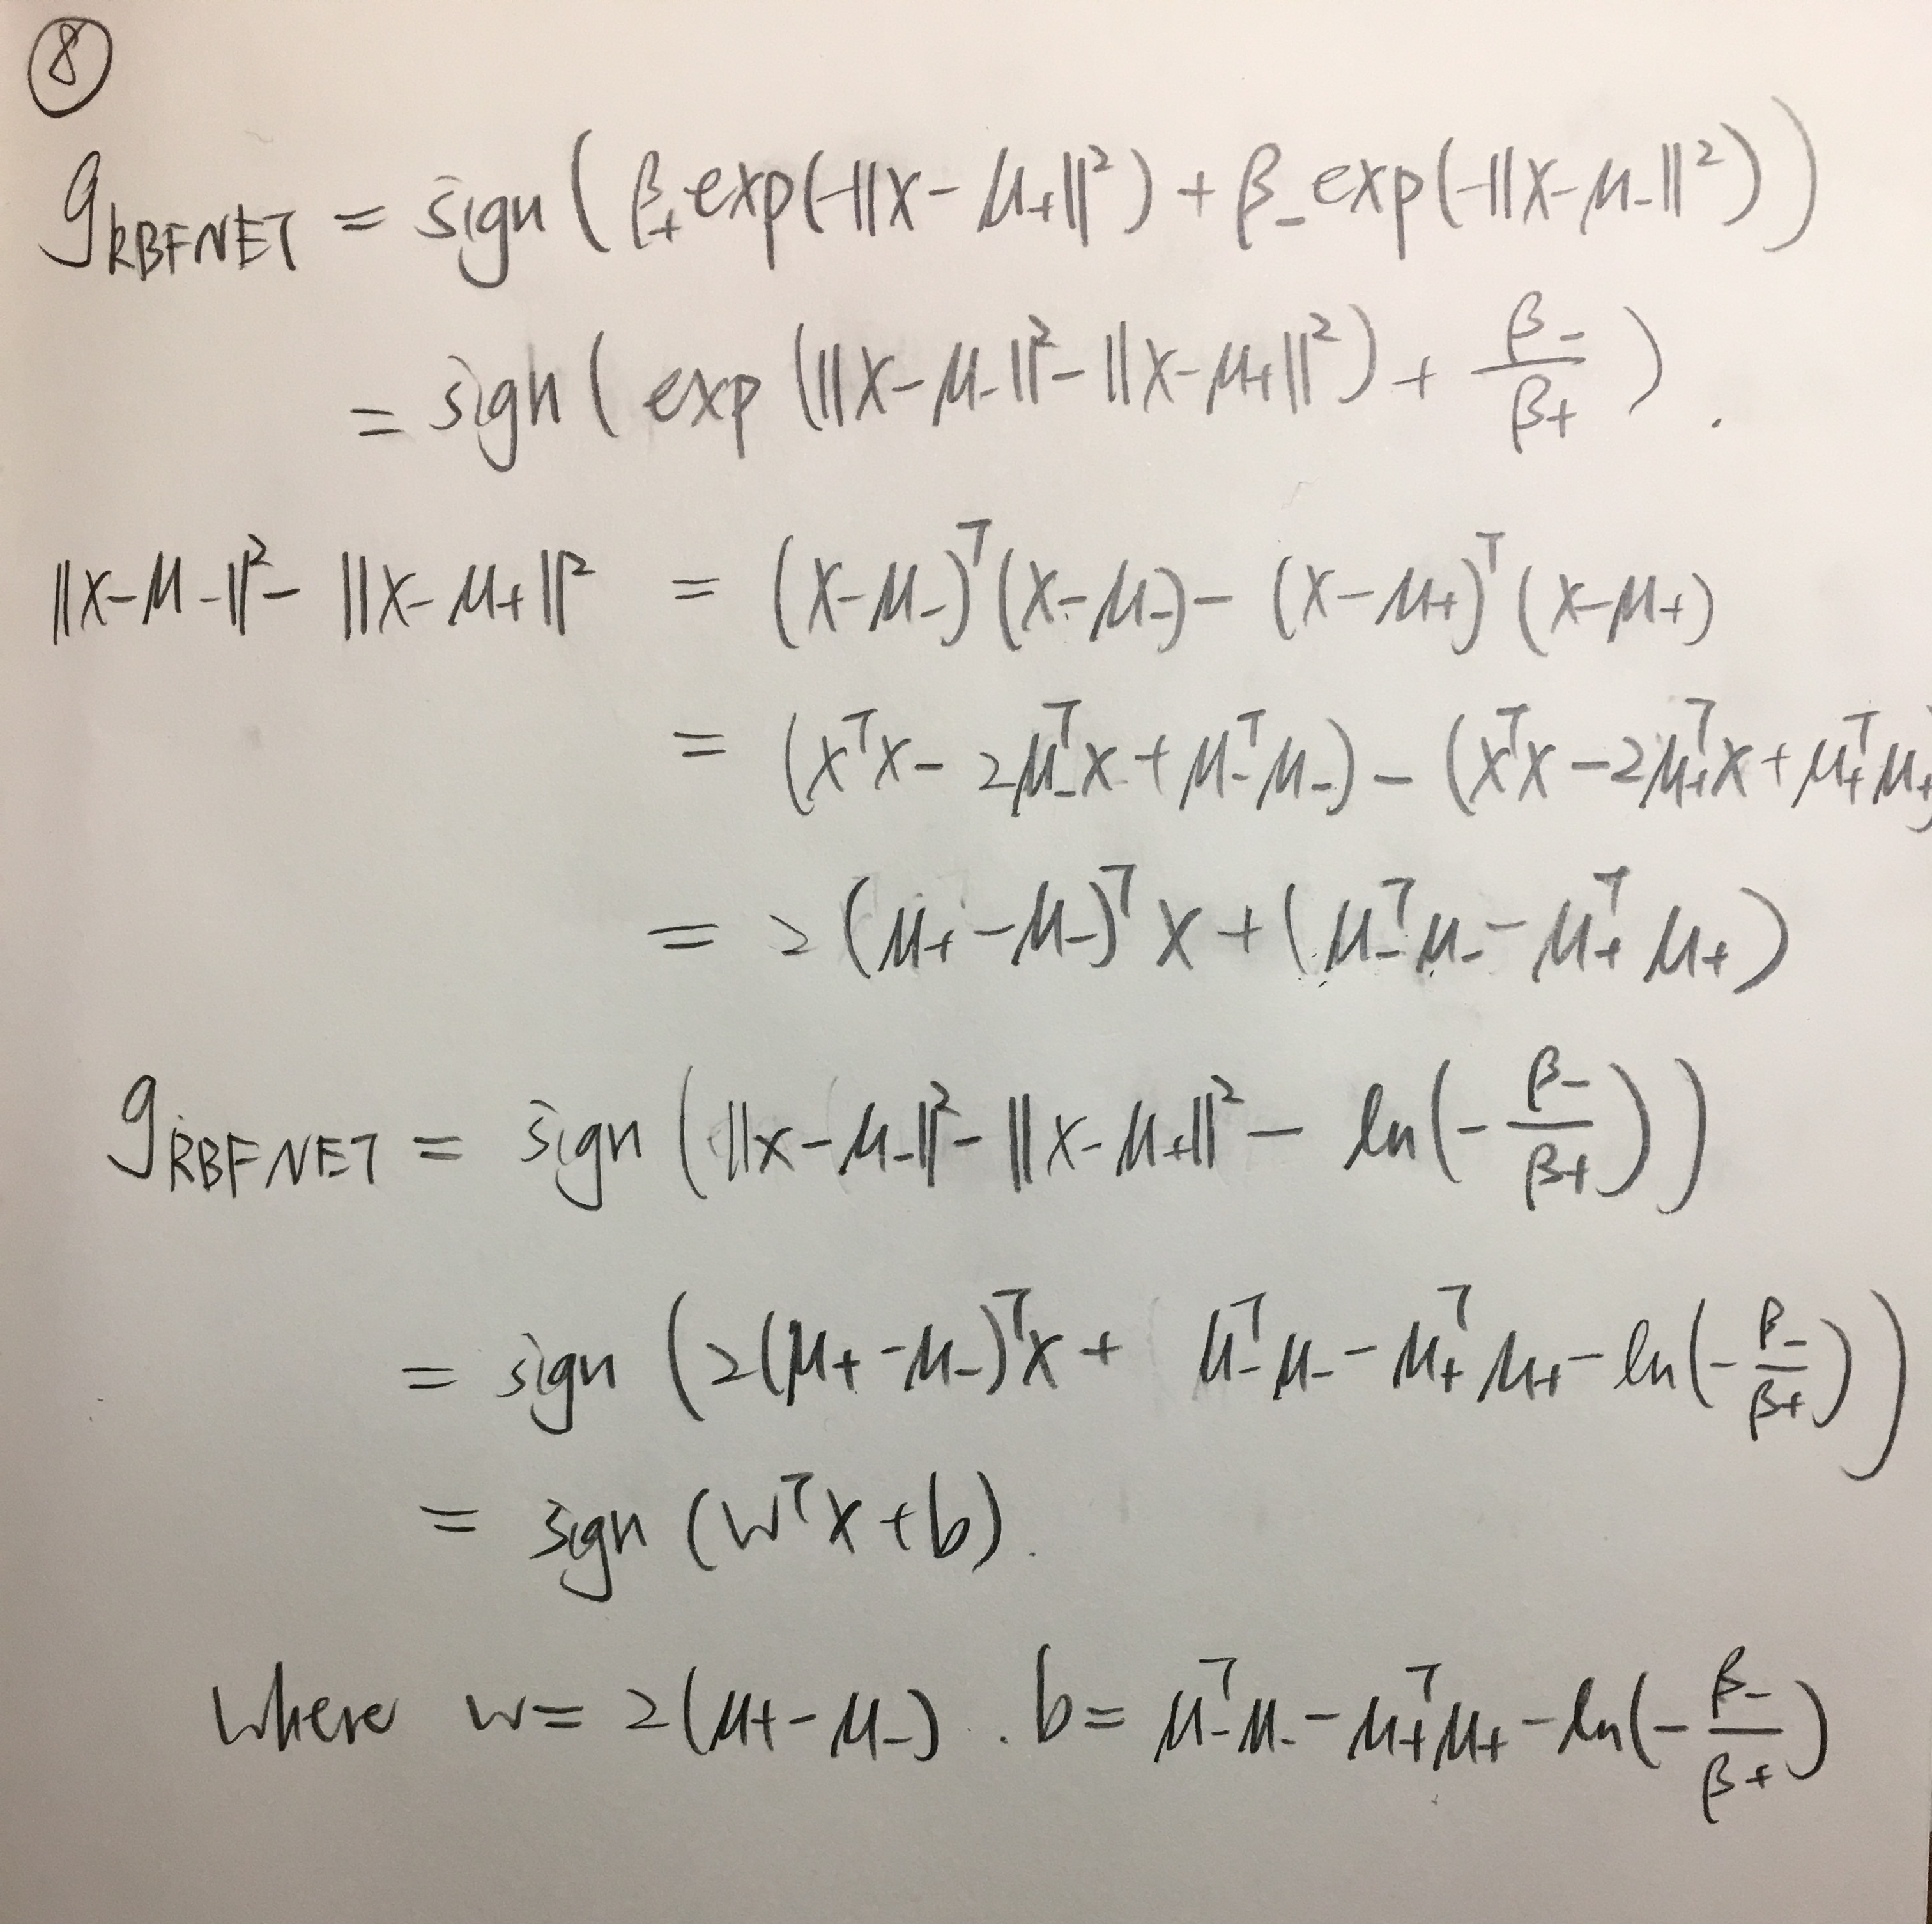 ⑧
g_RBFNET = sign ( β₊ exp(-||x-μ₊||²) + β₋ exp(-||x-μ₋||²) )
= sign ( exp (||x-μ₋||² - ||x-μ₊||²) + β₋/β₊ ) .
||x-μ₋||² - ||x-μ₊||² = (x-μ₋)ᵀ(x-μ₋) - (x-μ₊)ᵀ(x-μ₊)
= (xᵀx - 2μ₋ᵀx + μ₋ᵀμ₋) - (xᵀx - 2μ₊ᵀx + μ₊ᵀμ₊)
= 2(μ₊-μ₋)ᵀx + (μ₋ᵀμ₋ - μ₊ᵀμ₊)
g_RBFNET = sign ( ||x-μ₋||² - ||x-μ₊||² - ln(-β₋/β₊) )
= sign ( 2(μ₊-μ₋)ᵀx + μ₋ᵀμ₋ - μ₊ᵀμ₊ - ln(-β₋/β₊) )
= sign (wᵀx + b).
where w = 2(μ₊-μ₋) . b = μ₋ᵀμ₋ - μ₊ᵀμ₊ - ln(-β₋/β₊)